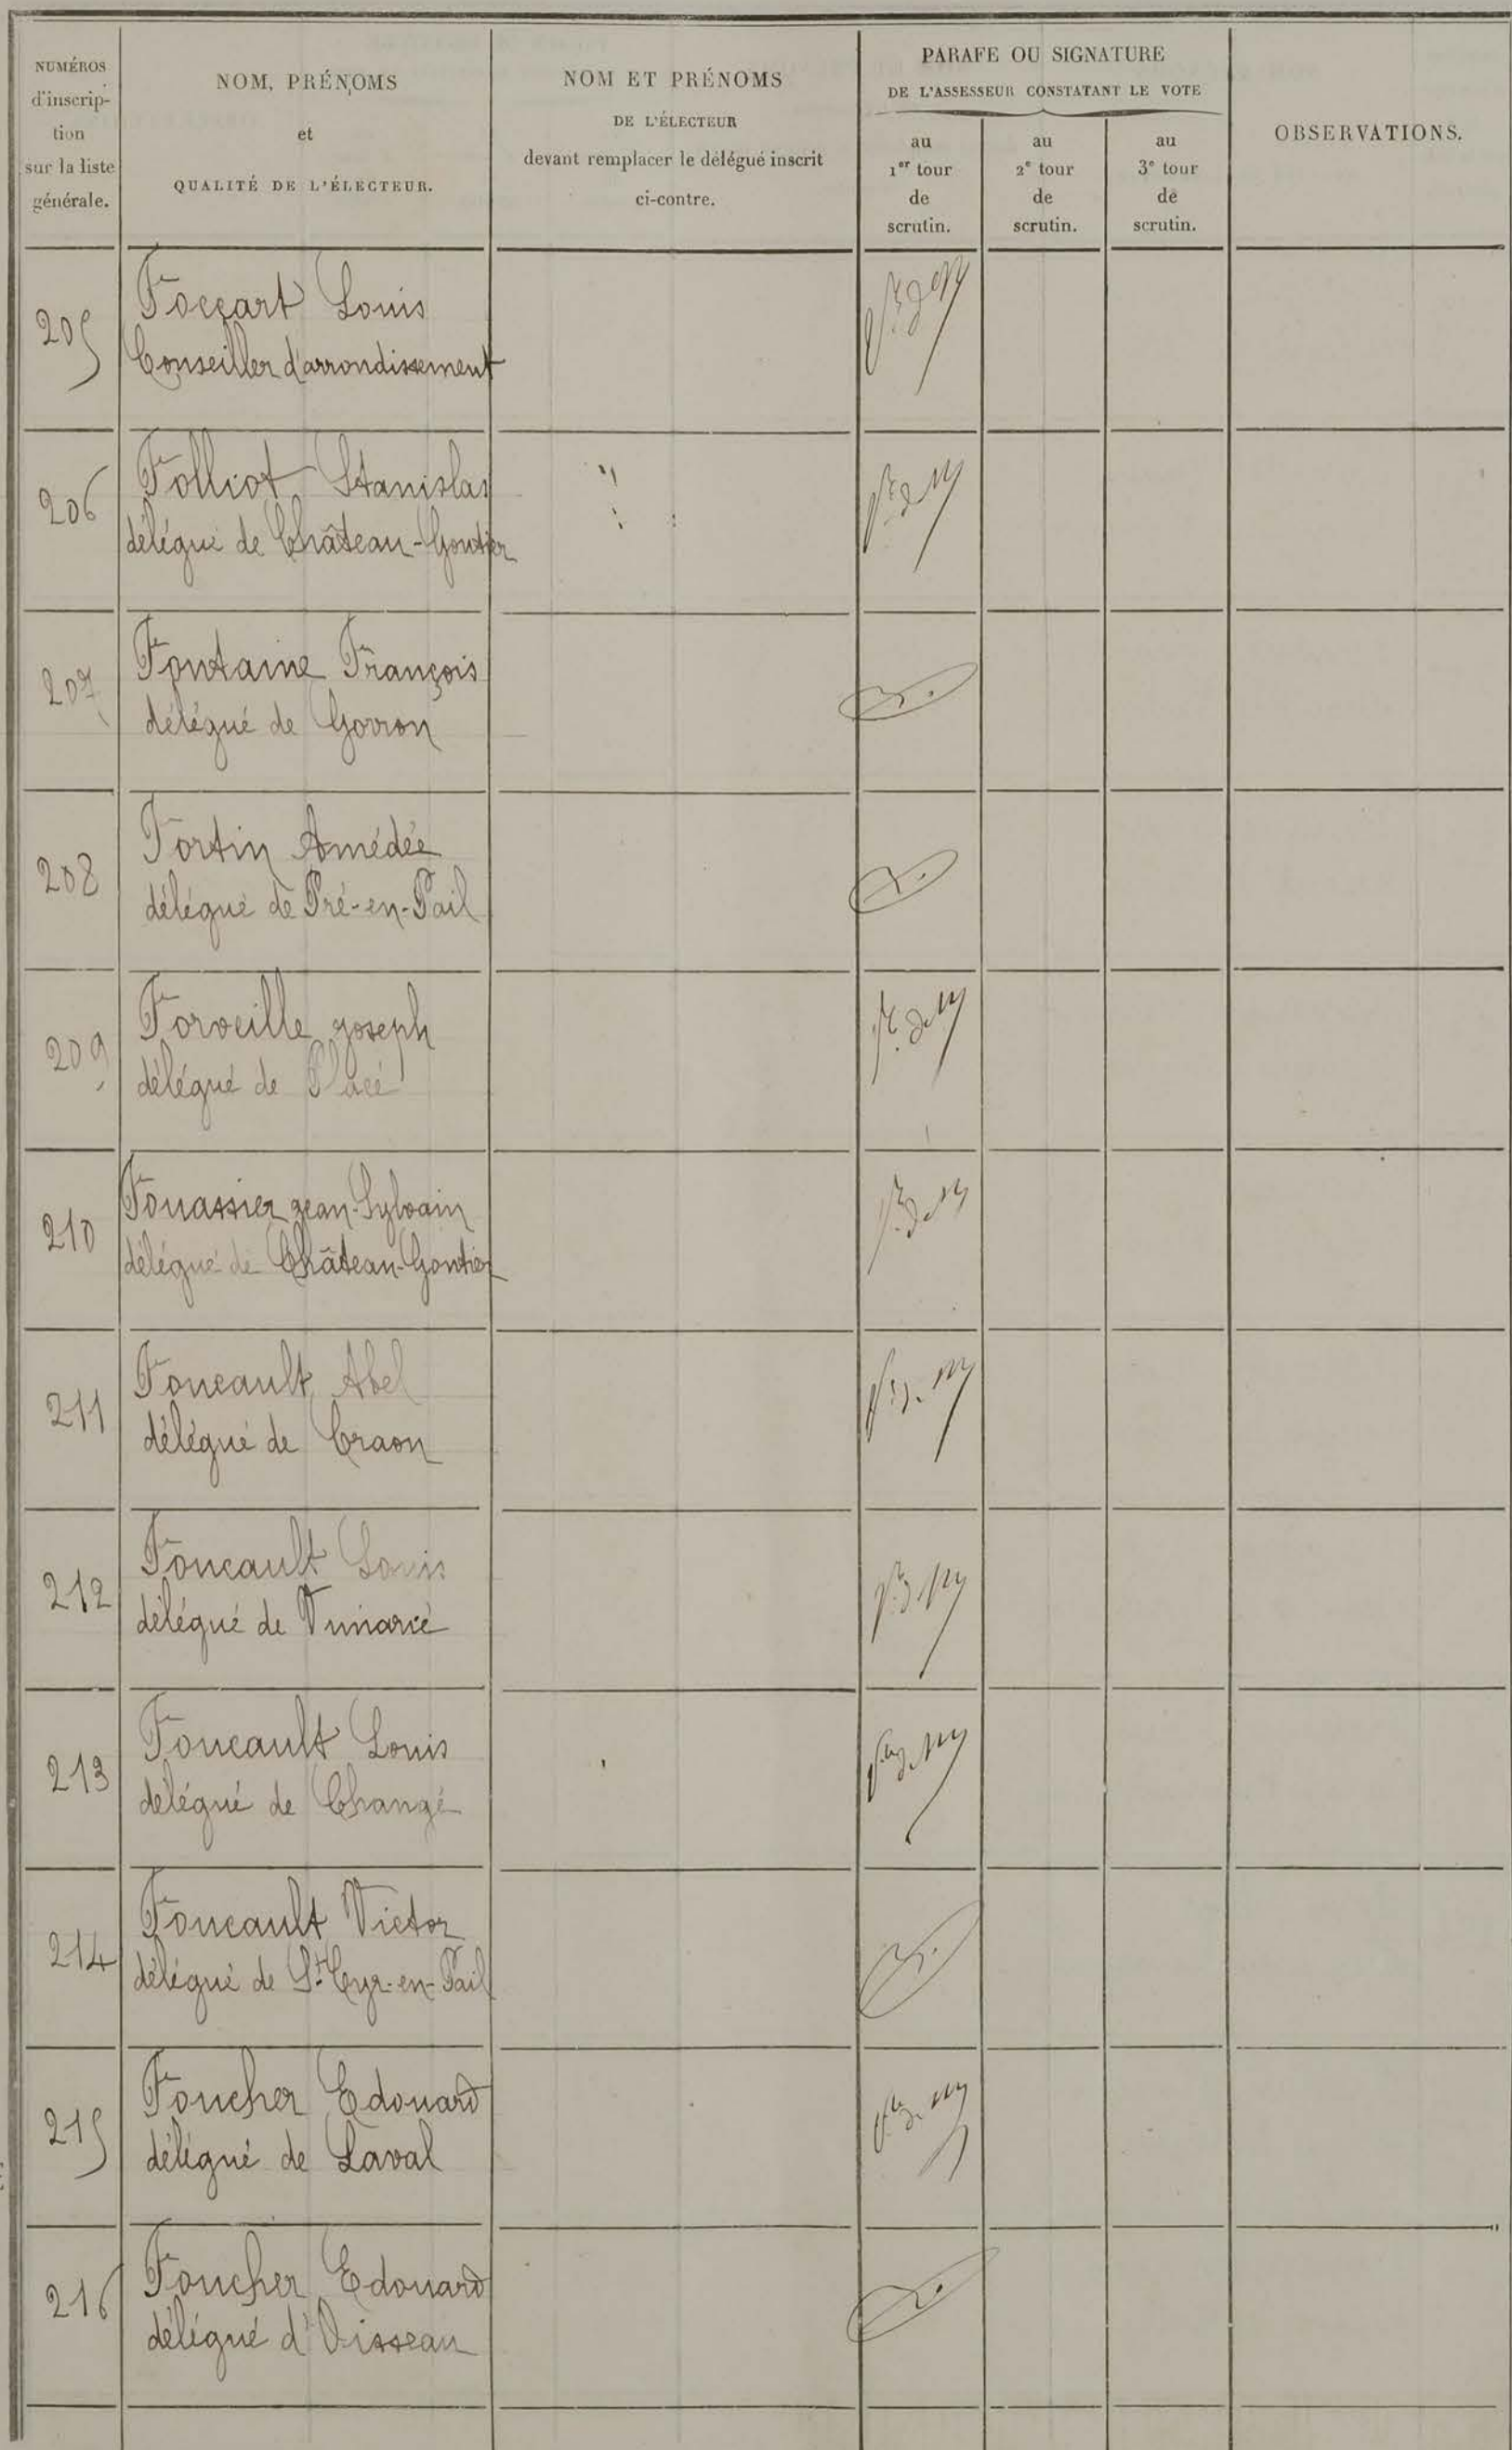 NUMÉROS
d'inscrip-
tion
sur la liste
générale.
NOM, PRÉNOMS
et
QUALITÉ DE L'ÉLECTEUR.
NOM ET PRÉNOMS
DE L'ÉLECTEUR
devant remplacer le délégué inscrit
ci-contre.
PARAFE OU SIGNATURE
DE L'ASSESSEUR CONSTATANT LE VOTE
au
1er tour
de
scrutin.
au
2e tour
de
scrutin.
au
3e tour
de
scrutin.
OBSERVATIONS.
205
Foccart Louis
Conseiller d'arrondissement
206
Folliot Stanislas
délégué de Château-Gontier
207
Fontaine François
délégué de Gorron
208
Fortin Amédée
délégué de Pré-en-Pail
209
Forveille Joseph
délégué de Placé
210
Fouassier Jean-Sylvain
délégué de Château-Gontier
211
Foucault Abel
délégué de Craon
212
Foucault Louis
délégué de Vimarcé
213
Foucault Louis
délégué de Changé
214
Foucault Victor
délégué de St Cyr-en-Pail
215
Foucher Edouard
délégué de Laval
216
Foucher Edouard
délégué d'Oisseau